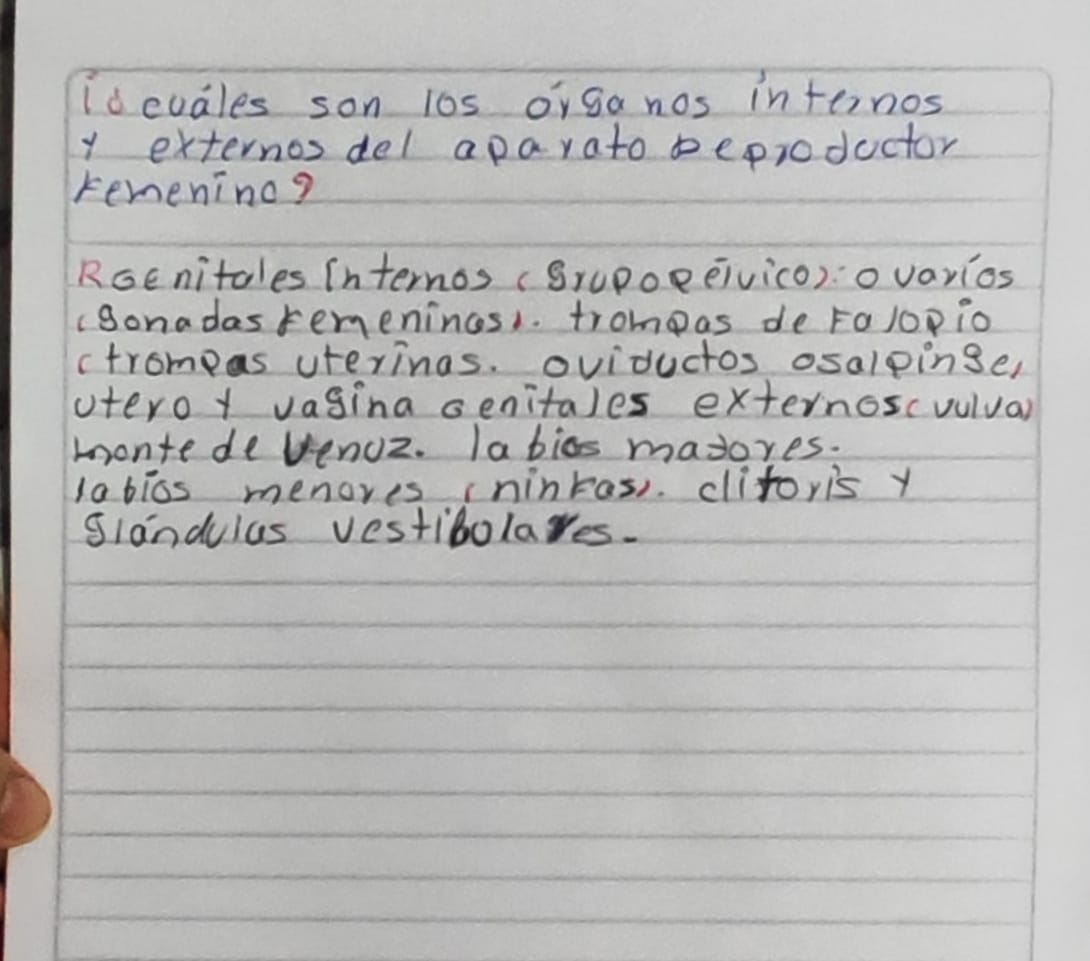 1¿cuáles son los órganos internos
y externos del aparato reproductor
Femenino?
R Genitales internos (grupo pélvico): ovarios
(gonadas femeninas). trompas de Falopio
(trompas uterinas. oviductos o salpinge,
utero y vagina genitales externos (vulva)
monte de Venuz. labios mayores.
labios menores (ninfas). clitoris y
glándulas vestibolares.